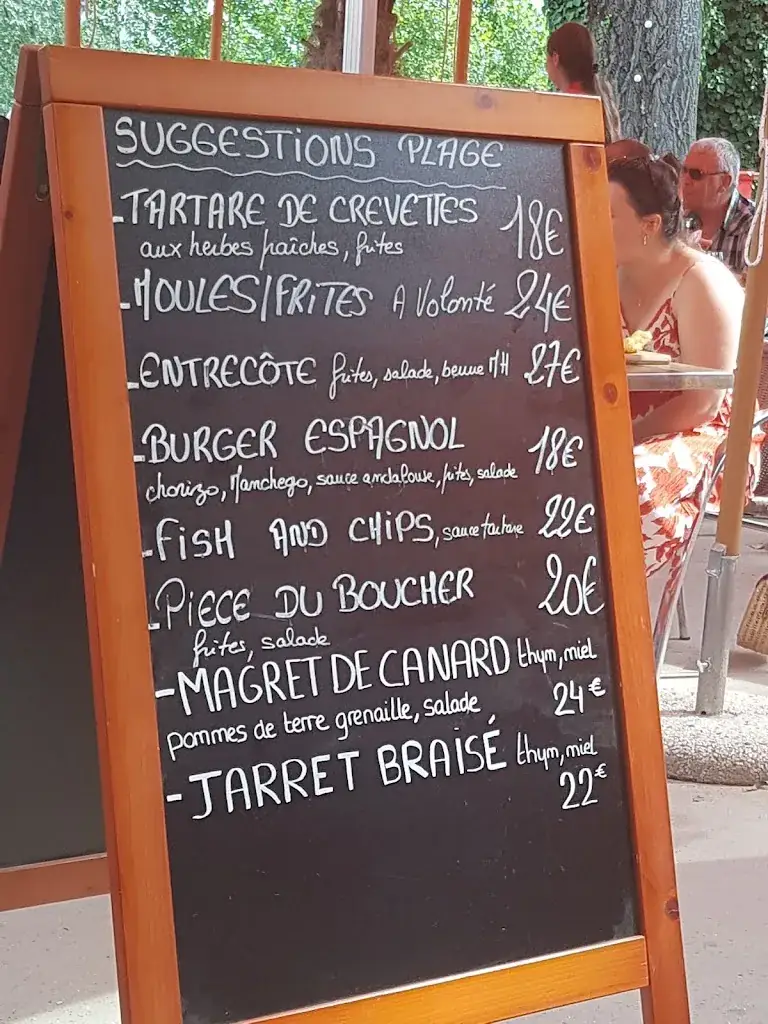 SUGGESTIONS PLAGE
-TARTARE DE CREVETTES 18€
aux herbes fraîches, frites
-MOULES/FRITES A Volonté 24€
-ENTRECÔTE frites, salade, beurre MH 27€
-BURGER ESPAGNOL 18€
chorizo, Manchego, sauce andalouse, frites, salade
-FISH AND CHIPS, sauce tartare 22€
-PIECE DU BOUCHER 20€
frites, salade
-MAGRET DE CANARD thym, miel
pommes de terre grenaille, salade 24€
-JARRET BRAISÉ thym, miel
22€